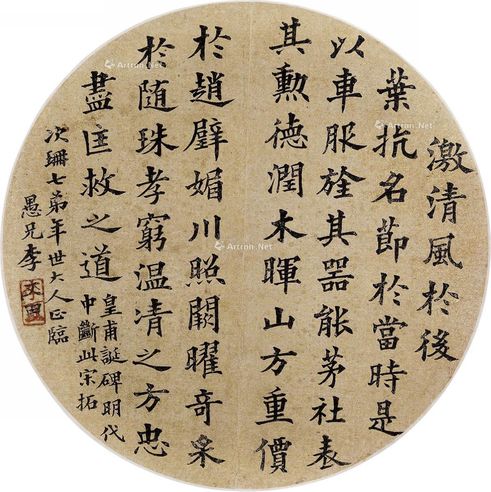 激清風於後
葉抗名節於當時是
以車服旌其器能茅社表
其勲德潤木暉山方重價
於趙璧媚川照闕曜奇采
於随珠孝窮温凊之方忠
盡匡救之道
皇甫誕碑明代
中斷此宋拓
次珊七弟年世大人正臨
愚兄李
Artron.Net
Artron.Net
Artron.Net
Artron.Net
Artron.Net